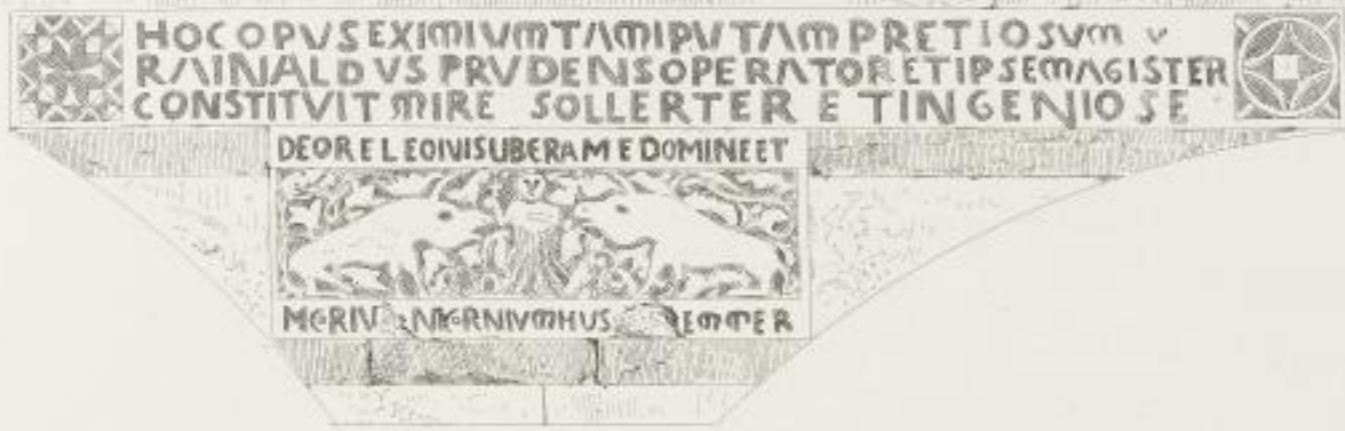 HOC OPVS EXIMIVM TAM IPV TAM PRETIOSVM V
RAINALDVS PRVDENS OPERATOR ET IPSE MAGISTER
CONSTITVIT MIRE SOLLERTER ET INGENIOSE
DE ORE LEOIVIS UBERA ME DOMINE ET